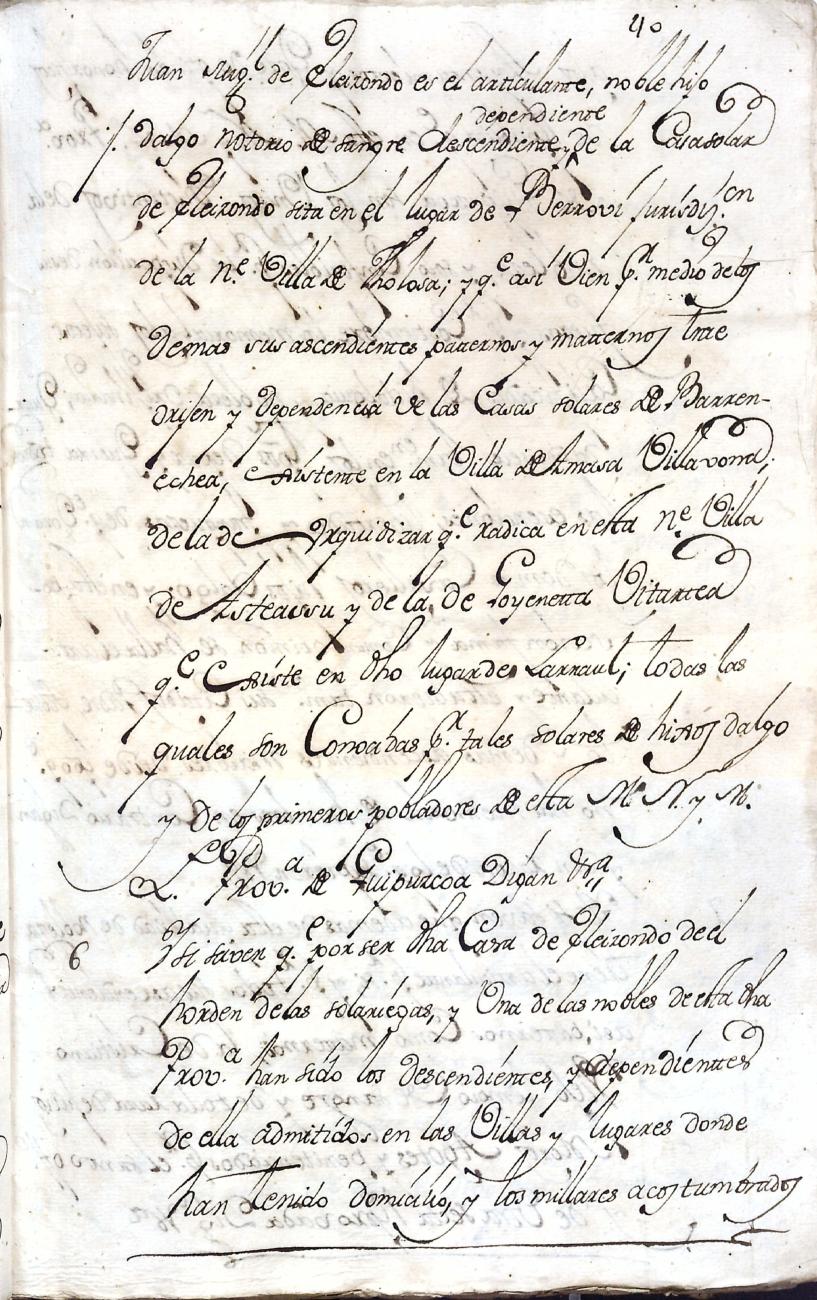 40
Juan Mig.l de Eleizondo es el articulante, noble hijo
dependiente
/. dalgo notorio de sangre descendiente, ^ de la Casa solar
de Eleizondo sita en el lugar de Berrovi jurisdiz.en
de la N.e Villa de Tholosa; y q.e asi vien p.r medio delos
demas sus ascendientes patternos y matternos trae
orijen y dependencia de las Casas solares de Barren-
echea, existente en la Villa de Amasa Villavona;
de la de Yrquidizar q.e radica en esta N.e Villa
de Asteassu y de la de Goyenetta Vitartea
q.e existe en dho lugar de Larraul; todas las
quales son Conoadas p.r tales solares de hixos dalgo
y de los primeros pobladores de esta M. N. y M.
L. Prov.a de Guipuzcoa Digan &ra
6 Y si saven q.e por ser dha Casa de Eleizondo de el
horden de las solariegas, y Una de las nobles de esta dha
Prov.a han sido los descendientes, y dependienttes
de ella admitidos en las Villas y lugares donde
han tenido domicilio, y los millares acostumbrados